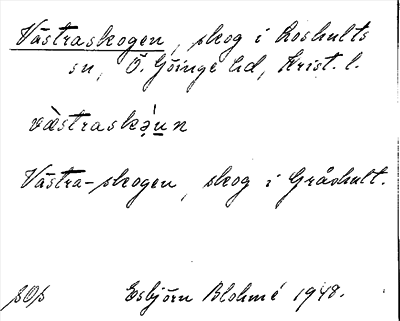 Västraskogen, skog i Loshults
sn, Ö. Göinge hd, Krist. l.
væ̀straskǝ́u̲n
Västra-skogen, skog i Gråshult.
Esbjörn Blohmé 1948.